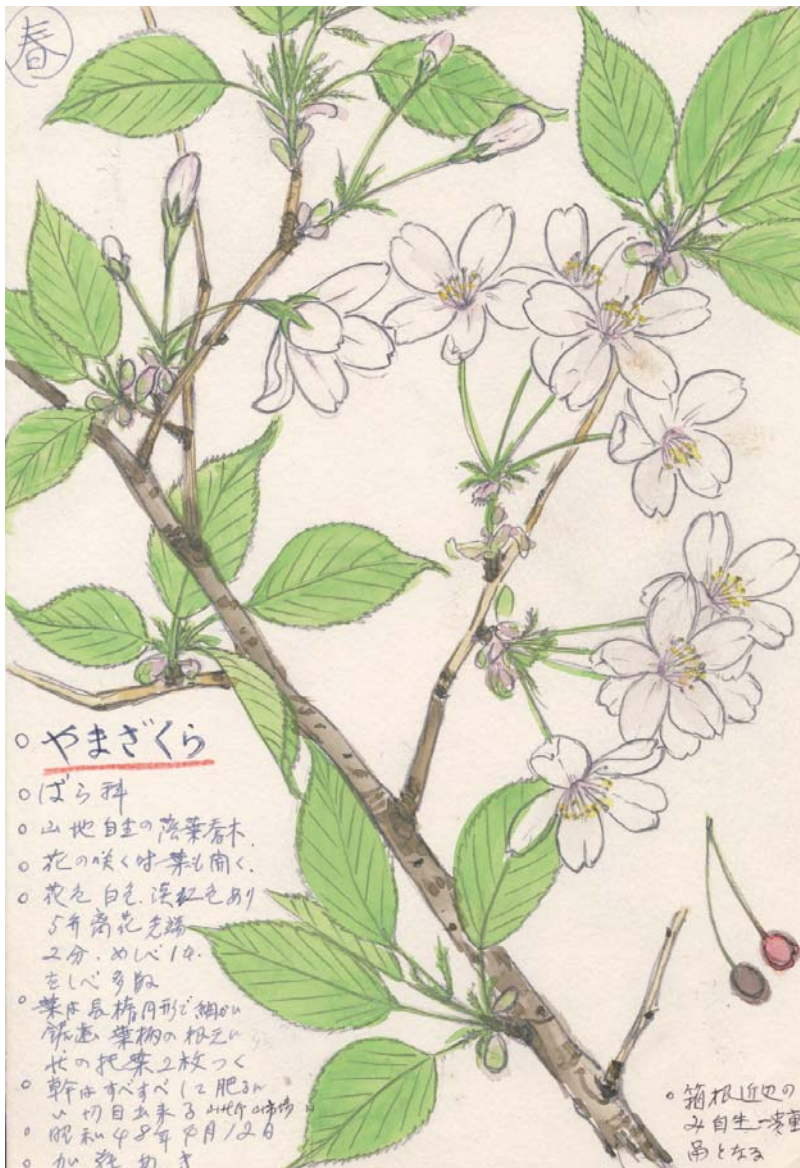 春
○ やまざくら
○ ばら科
○ 山地自生の落葉喬木.
○ 花の咲く時葉も開く.
○ 花色 白色. 淡紅色あり
5弁離花先端
2分. めしべ1本.
をしべ多数
○ 葉は長楕円形で細かい
鋸歯 葉柄の根元に
の托葉2枚つく
○ 幹はすべすべして肥るに
い切目出来る
○ 昭和48年4月12日
○
○ 箱根近辺の
み自生
品となる